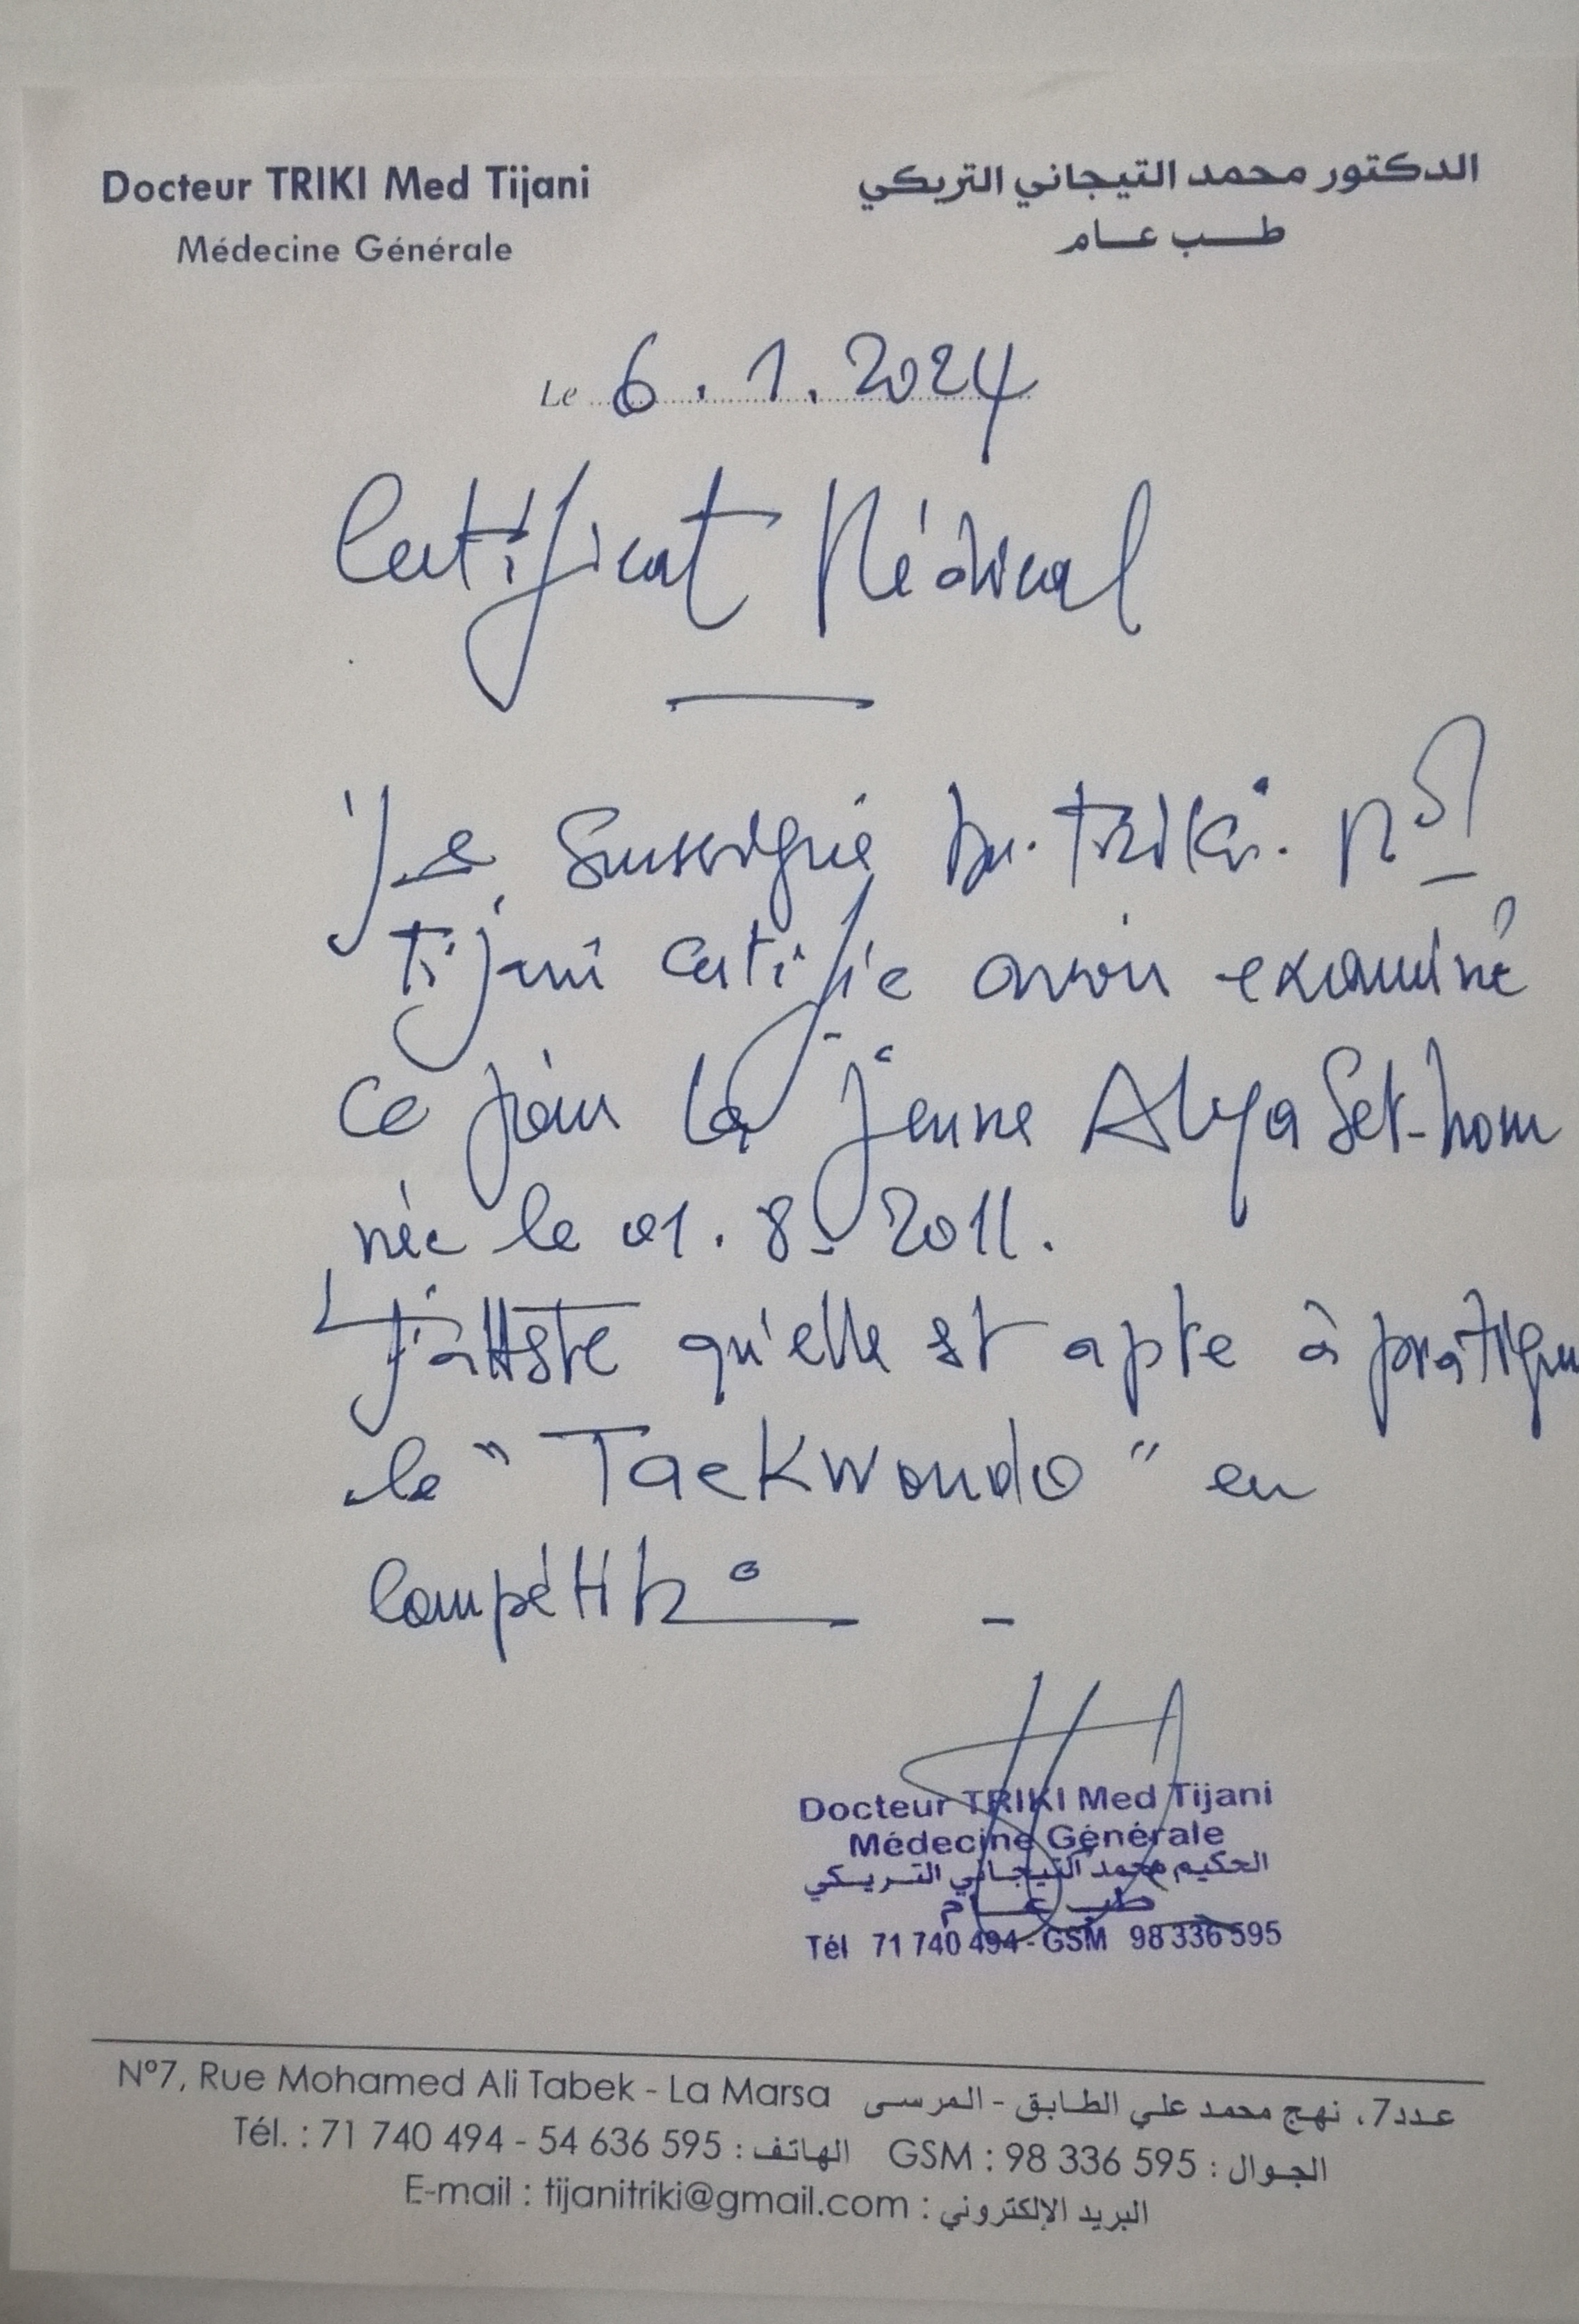 Docteur TRIKI Med Tijani
الدكتور محمد التيجاني التريكي
Médecine Générale
طب عام
Le 6.1.2024
Certificat Médical
Je Soussigné Dr. Triki. Md
Tijani certifie avoir examiné
ce jour la jeune Alya Set-hom
née le 01.8.2011.
J'atteste qu'elle est apte à pratiquer
le "Taekwondo" en
compétition -
Docteur TRIKI Med Tijani
Médecine Générale
الحكيم محمد التيجاني التريكي
طب عام
Tél 71 740 494 - GSM 98 336 595
N°7, Rue Mohamed Ali Tabek - La Marsa عدد7، نهج محمد علي الطابق - المرسى
Tél. : 71 740 494 - 54 636 595 : الهاتف GSM : 98 336 595 : الجوال
E-mail : tijanitriki@gmail.com : البريد الإلكتروني